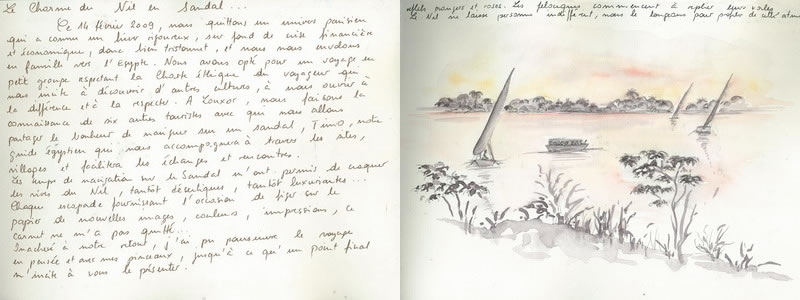 Le Charme du Nil en Sandal...
Ce 14 février 2009, nous quittons un univers parisien
qui a connu un hiver rigoureux, sur fond de crise financière
et économique, donc bien tristounet, et nous nous envolons
en famille vers l'Egypte. Nous avons opté pour un voyage en
petit groupe respectant la Charte Ethique du voyageur qui
nous incite à découvrir d'autres cultures, à nous ouvrir à
la différence et à la respecter. A Louxor, nous faisons la
connaissance de six autres touristes avec qui nous allons
partager le bonheur de naviguer sur un sandal, Timo, notre
guide égyptien qui nous accompagnera à travers les sites,
villages et facilitera les échanges et rencontres.
Les temps de navigation sur le Sandal m'ont permis de croquer
les rives du Nil, tantôt désertiques, tantôt luxuriantes...
Chaque escapade fournissant l'occasion de figer sur le
papier de nouvelles images, couleurs, impressions, ce
carnet ne m'a pas quitté...
Inachevé à notre retour, j'ai pu poursuivre le voyage
en pensée et avec mes pinceaux, jusqu'à ce qu'un point final
m'incite à vous le présenter.
reflets orangés et rosés. Les felouques commencent à replier leurs voiles.
Le Nil ne laisse personne indifférent, nous le longeons pour profiter de cette